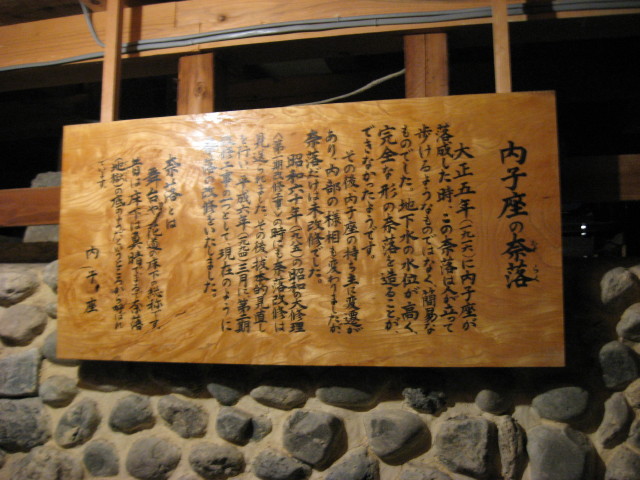 内子座の奈落
ならく
大正五年(一九一六)に内子座が
落成した時、この奈落は人が立って
歩けるようなものではなく、簡易な
ものでした。地下水の水位が高く、
完全な形の奈落を造ることが
できなかったようです。
その後内子座の持ち主に変遷が
あり、内部の様相も変わりましたが
奈落だけは未改修でした。
昭和六十年(一九八五)の昭和の大修理
(第一期改修)の時にも奈落改修は
見送られました。その後、抜本的見直し
を行い、平成六年(一九九四)三月に第二期
工事の一つとして現在のように
奈落の改修をいたしました。
奈落とは
舞台や花道の床下の総称です。
昔は床下は真暗であり奈落
(地獄)の底のようだというところからこう呼ばれ
ています。
内子座